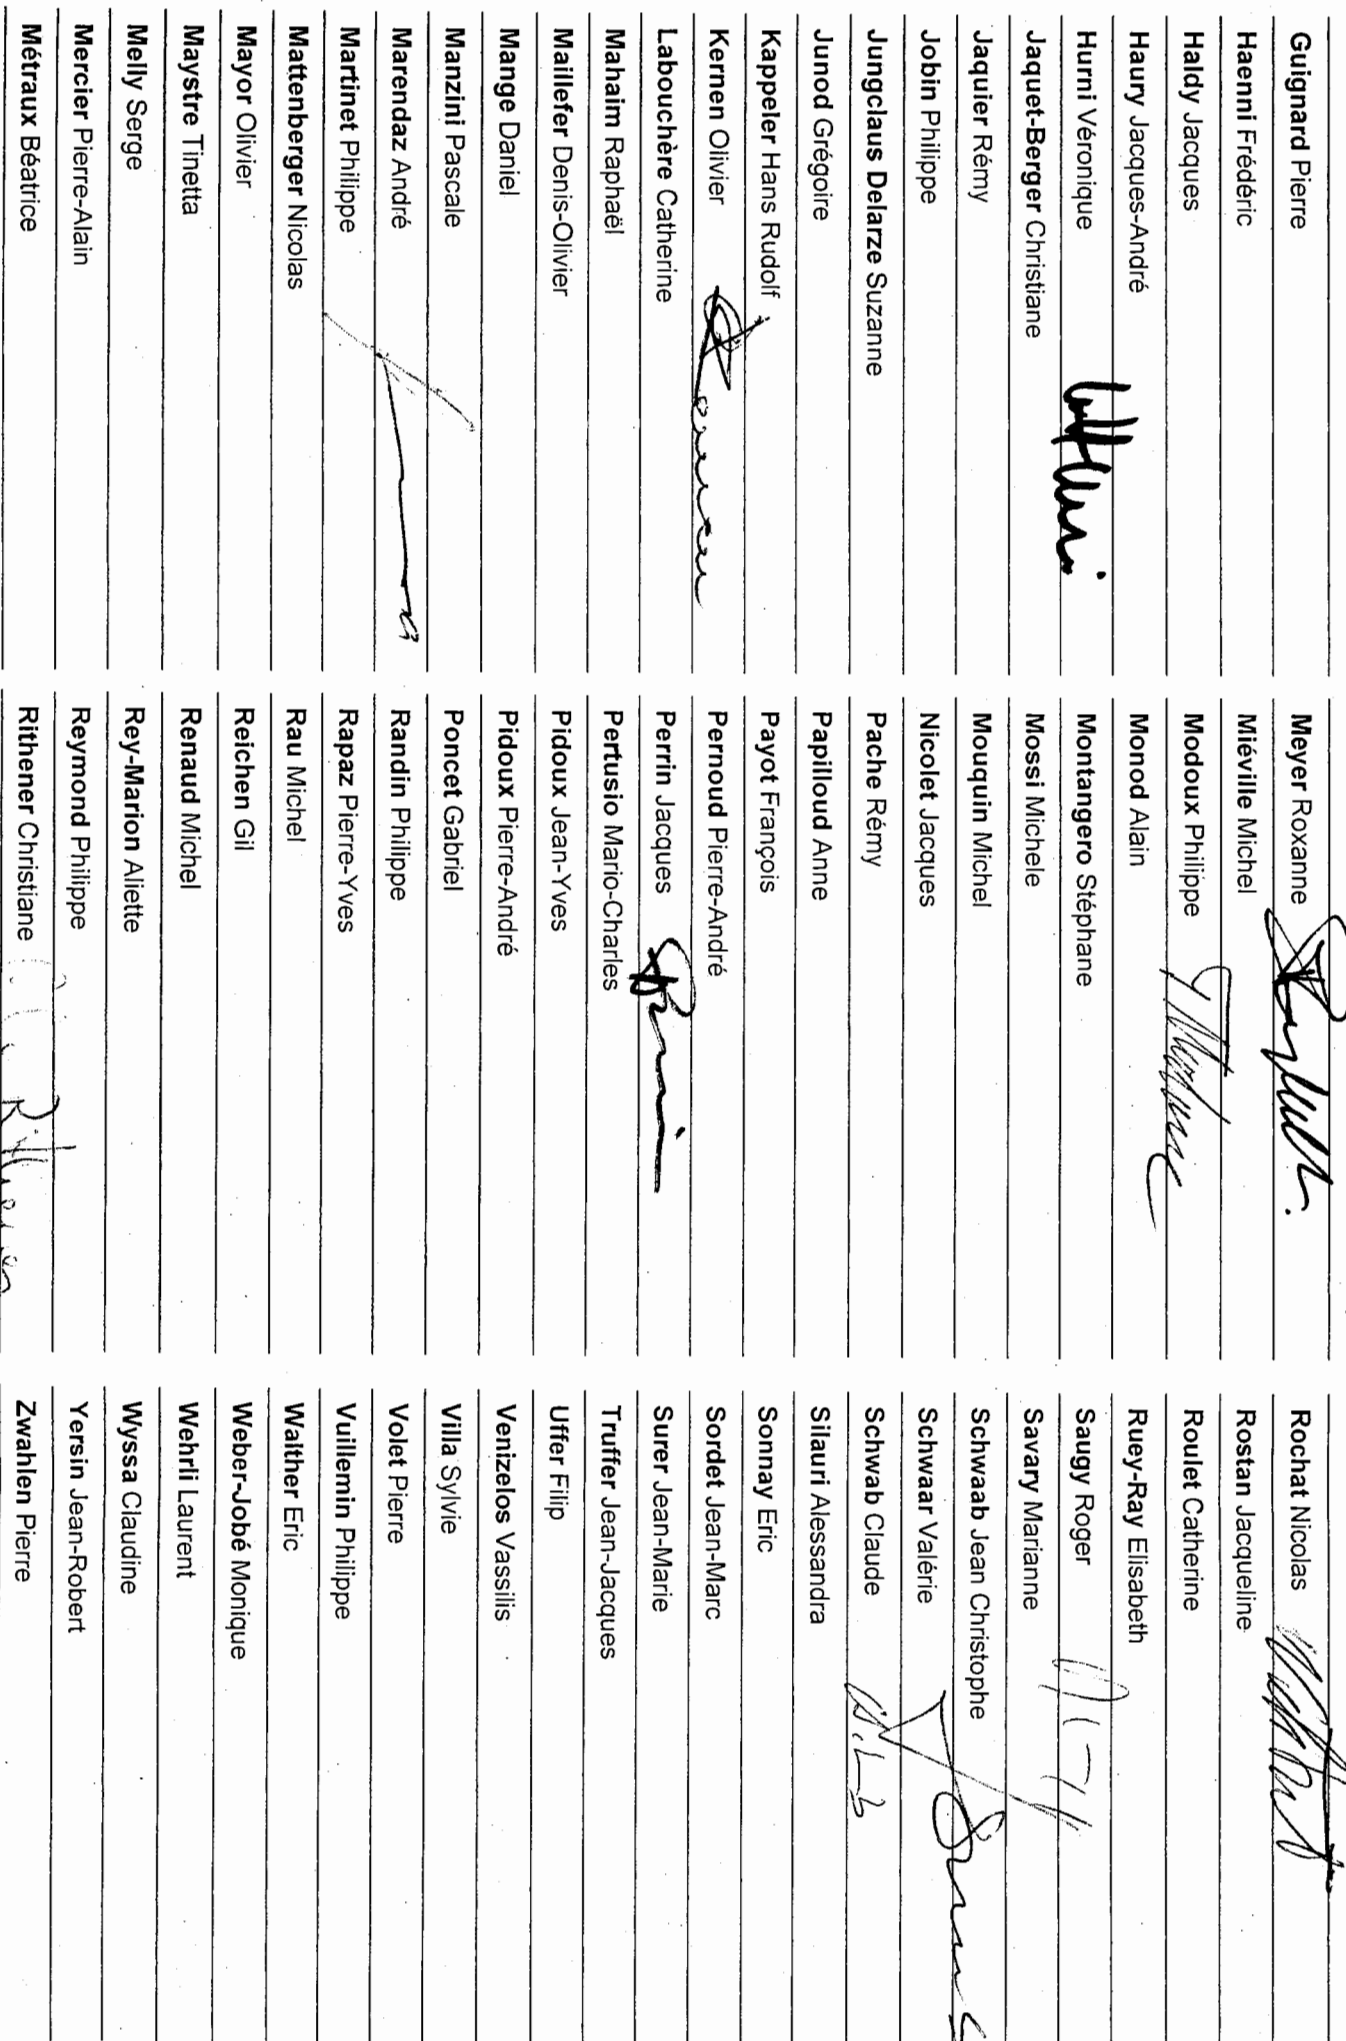 Guignard Pierre
Haenni Frédéric
Haldy Jacques
Haury Jacques-André
Hurni Véronique
Jaquet-Berger Christiane
Jaquier Rémy
Jobin Philippe
Jungclaus Delarze Suzanne
Junod Grégoire
Kappeler Hans Rudolf
Kernen Olivier
Labouchère Catherine
Mahaim Raphaël
Maillefer Denis-Olivier
Mange Daniel
Manzini Pascale
Marendaz André
Martinet Philippe
Mattenberger Nicolas
Mayor Olivier
Maystre Tinetta
Melly Serge
Mercier Pierre-Alain
Métraux Béatrice
Meyer Roxanne
Miéville Michel
Modoux Philippe
Monod Alain
Montangero Stéphane
Mossi Michele
Mouquin Michel
Nicolet Jacques
Pache Rémy
Papilloud Anne
Payot François
Pernoud Pierre-André
Perrin Jacques
Pertusio Mario-Charles
Pidoux Jean-Yves
Pidoux Pierre-André
Poncet Gabriel
Randin Philippe
Rapaz Pierre-Yves
Rau Michel
Reichen Gil
Renaud Michel
Rey-Marion Aliette
Reymond Philippe
Rithener Christiane
Rochat Nicolas
Rostan Jacqueline
Roulet Catherine
Ruey-Ray Elisabeth
Saugy Roger
Savary Marianne
Schwaab Jean Christophe
Schwaar Valérie
Schwab Claude
Silauri Alessandra
Sonnay Eric
Sordet Jean-Marc
Surer Jean-Marie
Truffer Jean-Jacques
Uffer Filip
Venizelos Vassilis
Villa Sylvie
Volet Pierre
Vuillemin Philippe
Walther Eric
Weber-Jobé Monique
Wehrli Laurent
Wyssa Claudine
Yersin Jean-Robert
Zwahlen Pierre